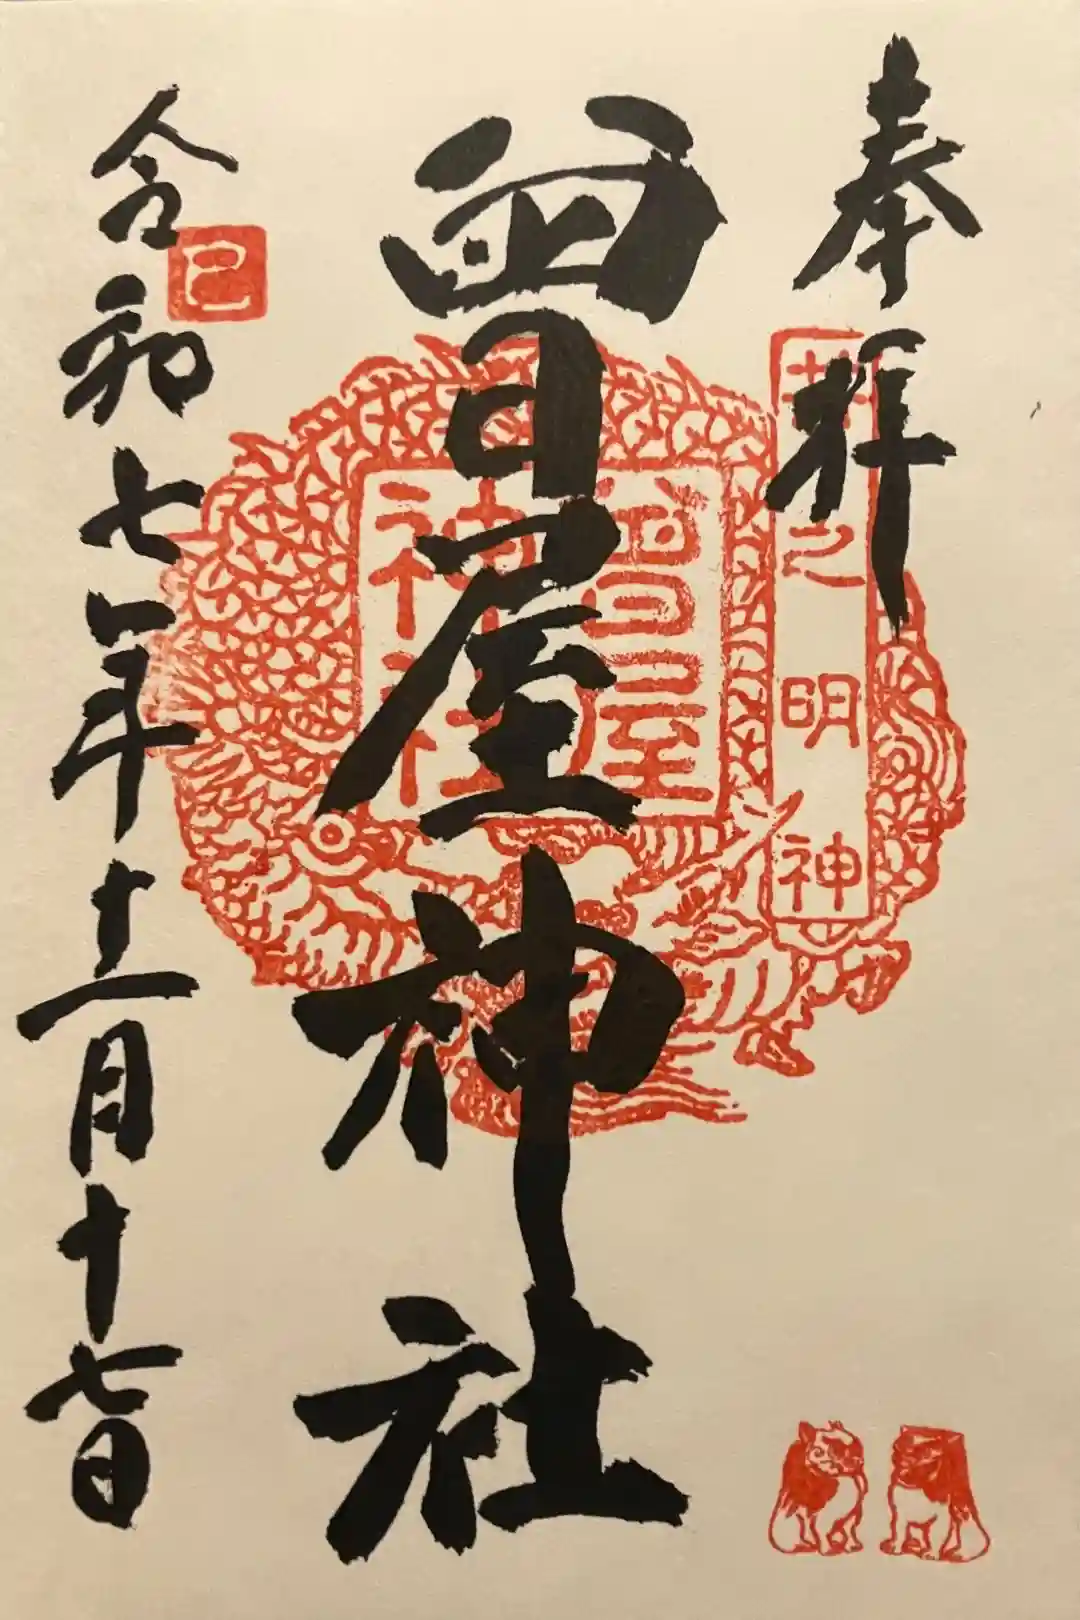 奉拝
井之明神
曽屋神社
曽屋
神社
令和七年十二月十七日
巳